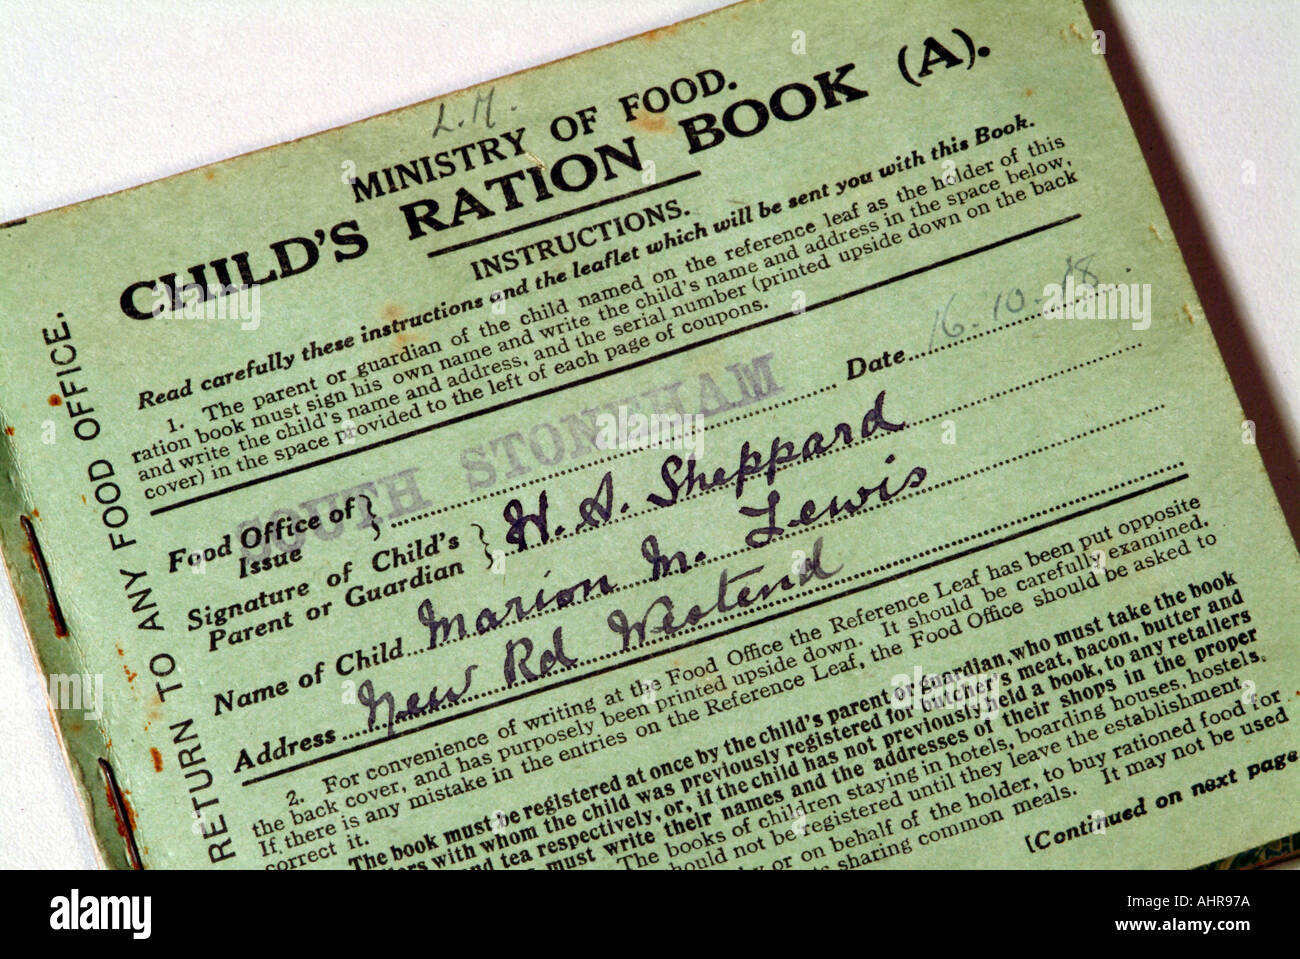 L.M.
MINISTRY OF FOOD.
CHILD'S RATION BOOK (A).
INSTRUCTIONS.
Read carefully these instructions and the leaflet which will be sent you with this Book.
1. The parent or guardian of the child named on the reference leaf as the holder of this
ration book must sign his own name and write the child's name and address in the space below,
and write the child's name and address, and the serial number (printed upside down on the back
cover) in the space provided to the left of each page of coupons.
Food Office of Issue } SOUTH STONEHAM Date 16.10.18.
Signature of Child's Parent or Guardian } H. A. Sheppard
Name of Child Marion M. Lewis
Address New Rd Westend
2. For convenience of writing at the Food Office the Reference Leaf has been put opposite
the back cover, and has purposely been printed upside down. It should be carefully examined.
If there is any mistake in the entries on the Reference Leaf, the Food Office should be asked to
correct it.
The book must be registered at once by the child's parent or guardian, who must take the book
with whom the child was previously registered for butcher's meat, bacon, butter and
and tea respectively, or, if the child has not previously held a book, to any retailers
must write their names and the addresses of their shops in the proper
The books of children staying in hotels, boarding houses, hostels,
should not be registered until they leave the establishment.
or on behalf of the holder, to buy rationed food for
sharing common meals. It may not be used
[Continued on next page
RETURN TO ANY FOOD OFFICE.
alamy
Image ID: AHR97A
www.alamy.com